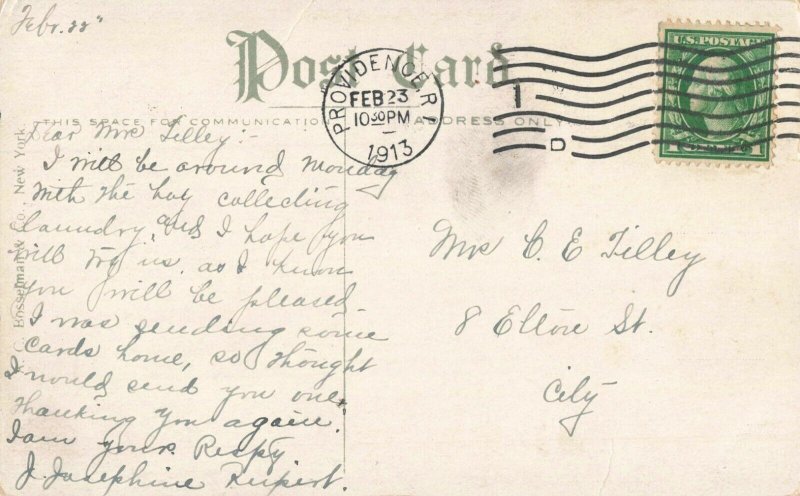 Febr. 22"
Post Card
THIS SPACE FOR COMMUNICATION ADDRESS ONLY
PROVIDENCE R.I.
FEB 23
10 30 PM
1913
1
D
U.S. POSTAGE
Dear Mrs Tilley:-
I will be around Monday
with the boy collecting
laundry, and I hope you
will try us, as I know
you will be pleased.
I was sending some
cards home, so thought
I would send you one.
Thanking you again.
I am yours Respy
J. Josephine
Mrs C. E Tilley
8 St.
City
Bosselman & Co., New York